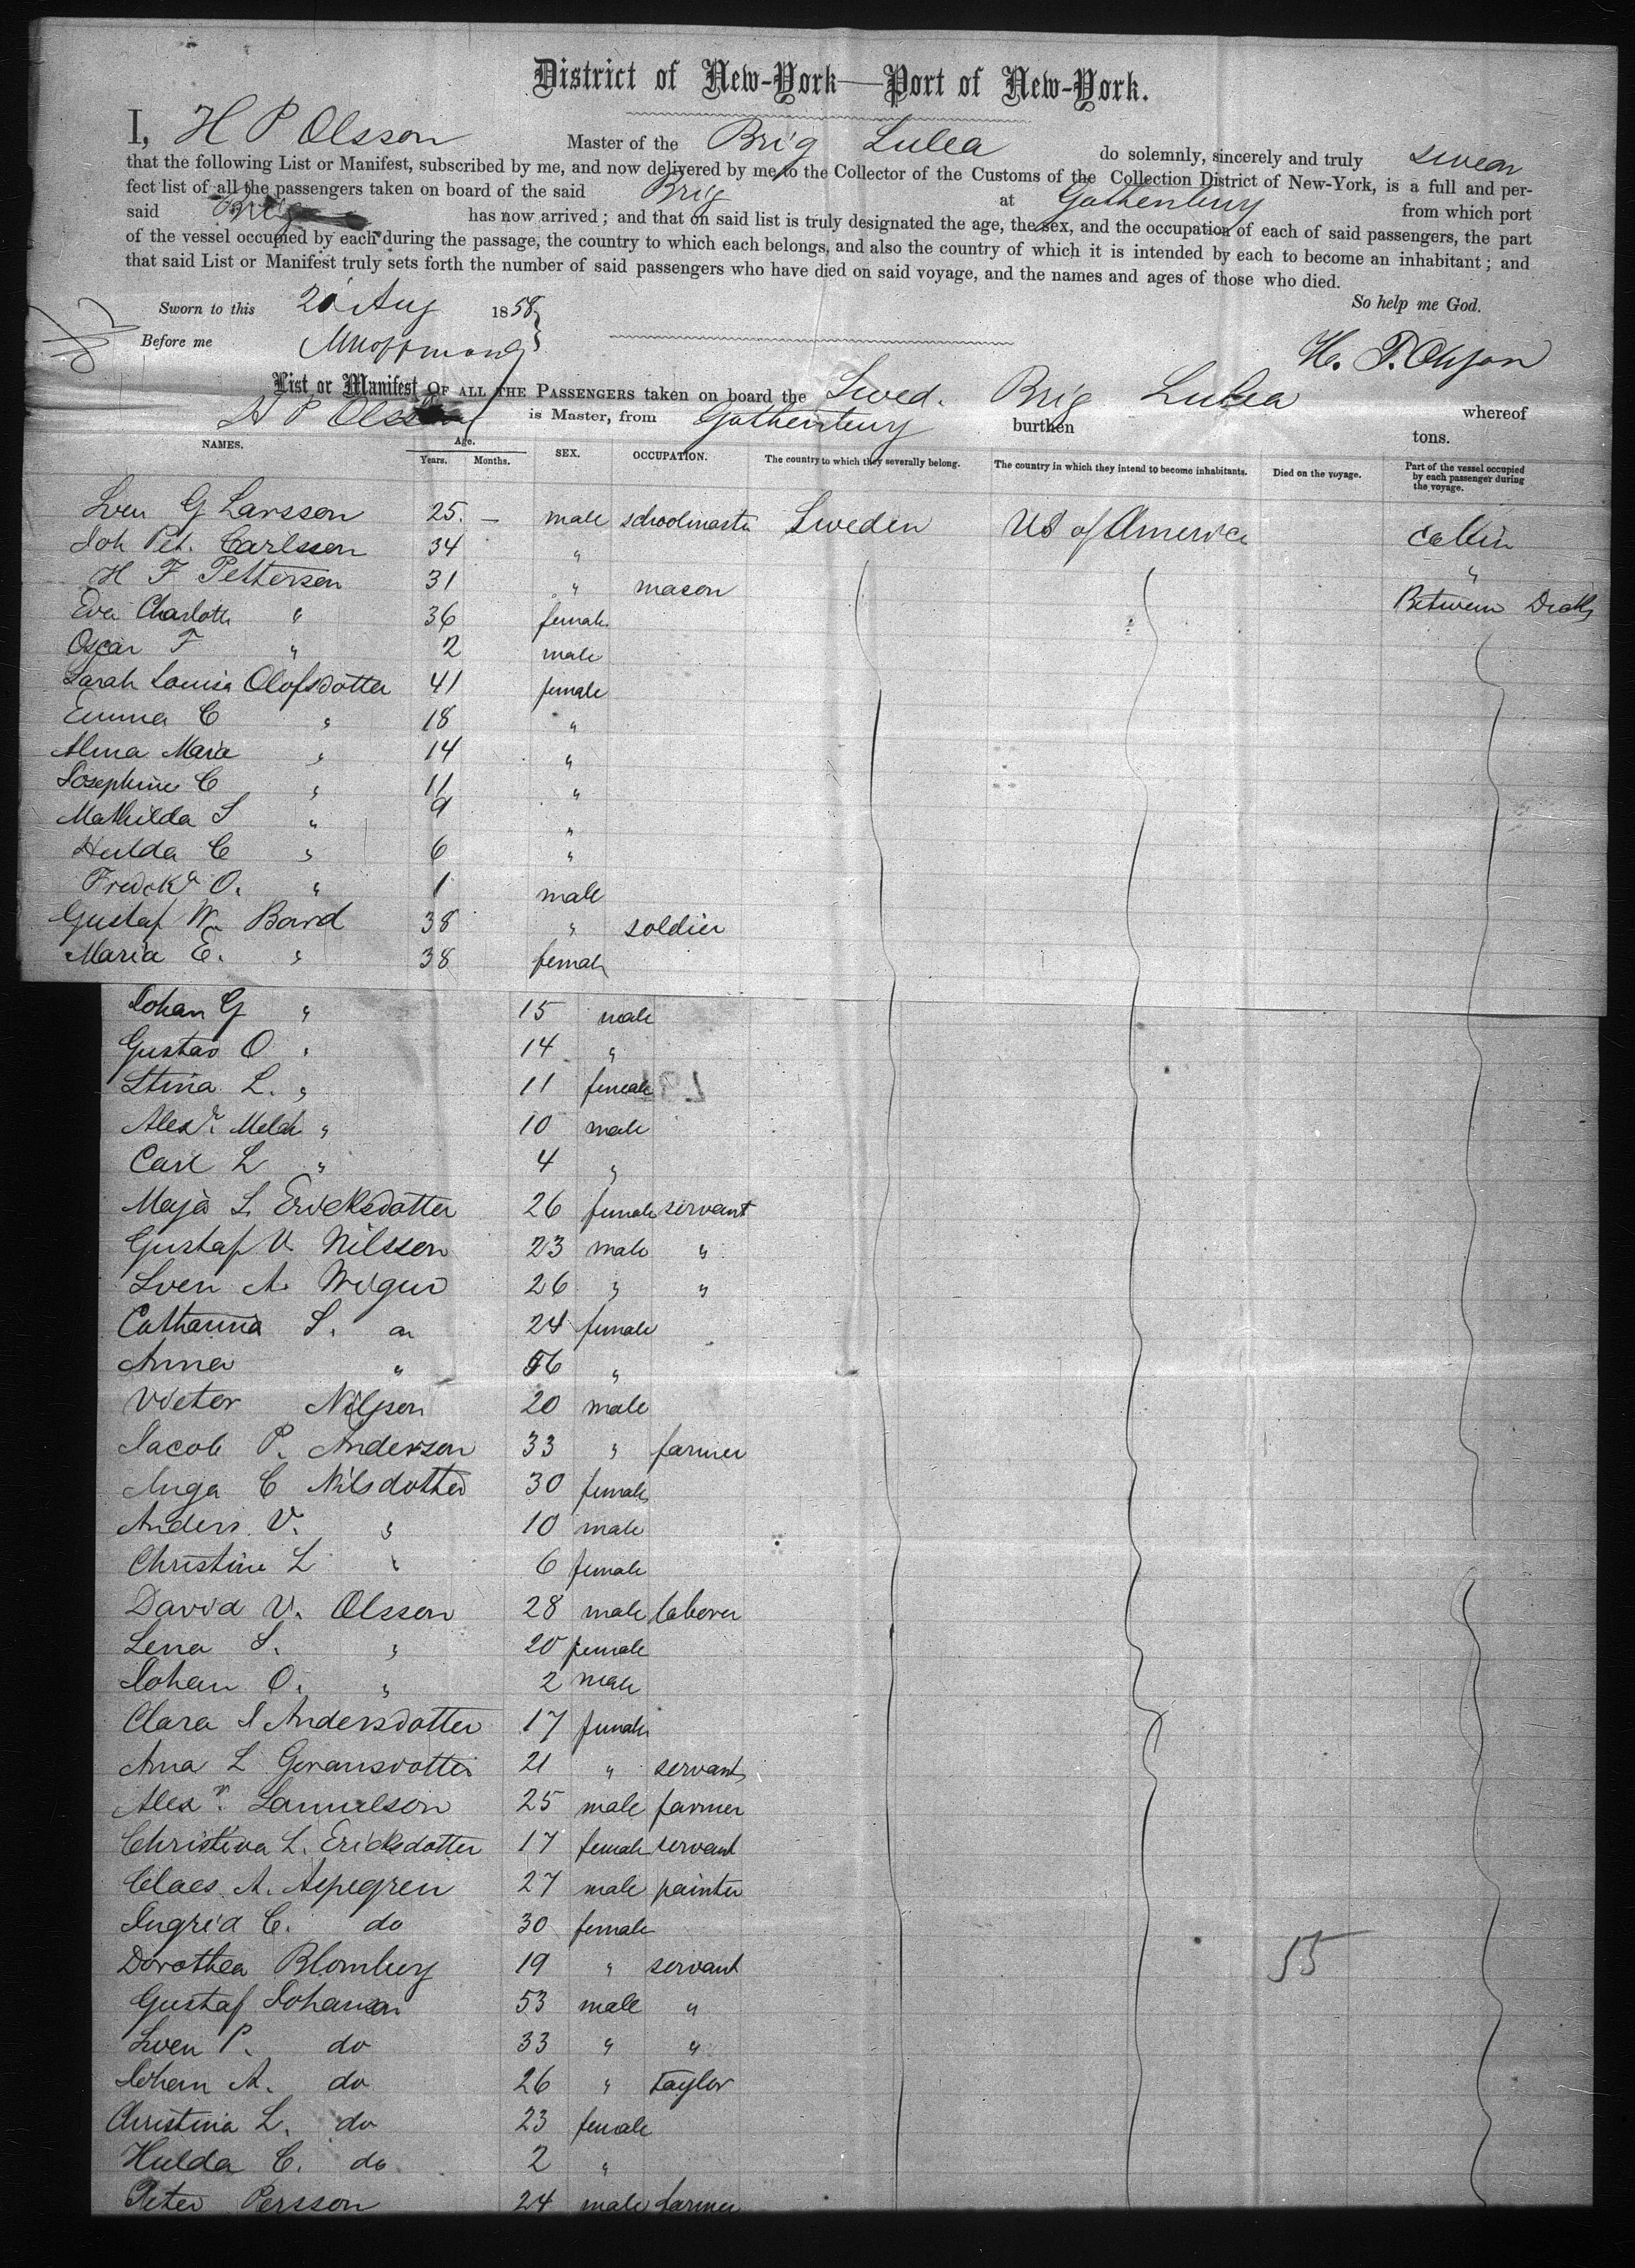 District of New-York—Port of New-York.
I, H P Olsson Master of the Brig Lulea do solemnly, sincerely and truly swear
that the following List or Manifest, subscribed by me, and now delivered by me to the Collector of the Customs of the Collection District of New-York, is a full and per-
fect list of all the passengers taken on board of the said Brig at Gothenburg from which port
said Brig has now arrived; and that on said list is truly designated the age, the sex, and the occupation of each of said passengers, the part
of the vessel occupied by each during the passage, the country to which each belongs, and also the country of which it is intended by each to become an inhabitant; and
that said List or Manifest truly sets forth the number of said passengers who have died on said voyage, and the names and ages of those who died.
So help me God.
Sworn to this Aug 1858
Before me
H. P. Olsson
List or Manifest OF ALL THE PASSENGERS taken on board the Swed. Brig Lulea whereof
H P Olsson is Master, from Gothenburg burthen tons.
NAMES. Age. Years. Months. SEX. OCCUPATION. The country to which they severally belong. The country in which they intend to become inhabitants. Died on the voyage. Part of the vessel occupied by each passenger during the voyage.
Sven G Larsson 25. — male schoolmaster Sweden US of America Cabin
Joh Pet. Carlsson 34 " "
H F Petterson 31 " mason Between Decks
Eva Charlotte " 36 female
Oscar F " 2 male
Sarah Louisa Olofsdotter 41 female
Emma C " 18 "
Alma Maria " 14 "
Josephine C " 11 "
Mathilda S " 9 "
Hulda C " 6 "
Fredk O. " 1 male
Gustaf W. Bard 38 " soldier
Maria E. " 38 female
Johan G " 15 male
Gustav O " 14 "
Stina L. " 11 female
Alexr. Melch " 10 male
Carl L " 4 "
Maja S. Ericksdotter 26 female servant
Gustaf V. Nilsson 23 male "
Sven A. 26 " "
Catharina S. 24 female
Anna " 56 "
Victor Nilsson 20 male
Jacob P. Anderson 33 " farmer
Inga C Nilsdotter 30 female
Anders V. " 10 male
Christine L " 6 female
David V. Olsson 28 male laborer
Lena S. " 20 female
Johan O. " 2 male
Clara S Andersdotter 17 female
Ana L Goransdotter 21 " servant
Alexr. Samuelson 25 male farmer
Christina L. Ericksdotter 17 female servant
Claes A. Aspegren 27 male painter
Ingrid C. do 30 female
Dorothea Blomberg 19 " servant 55
Gustaf Johanson 53 male "
Sven P. do 33 " "
Johan A. do 26 " Taylor
Christina L. do 23 female
Hulda C. do 2 "
Peter Persson 24 male farmer